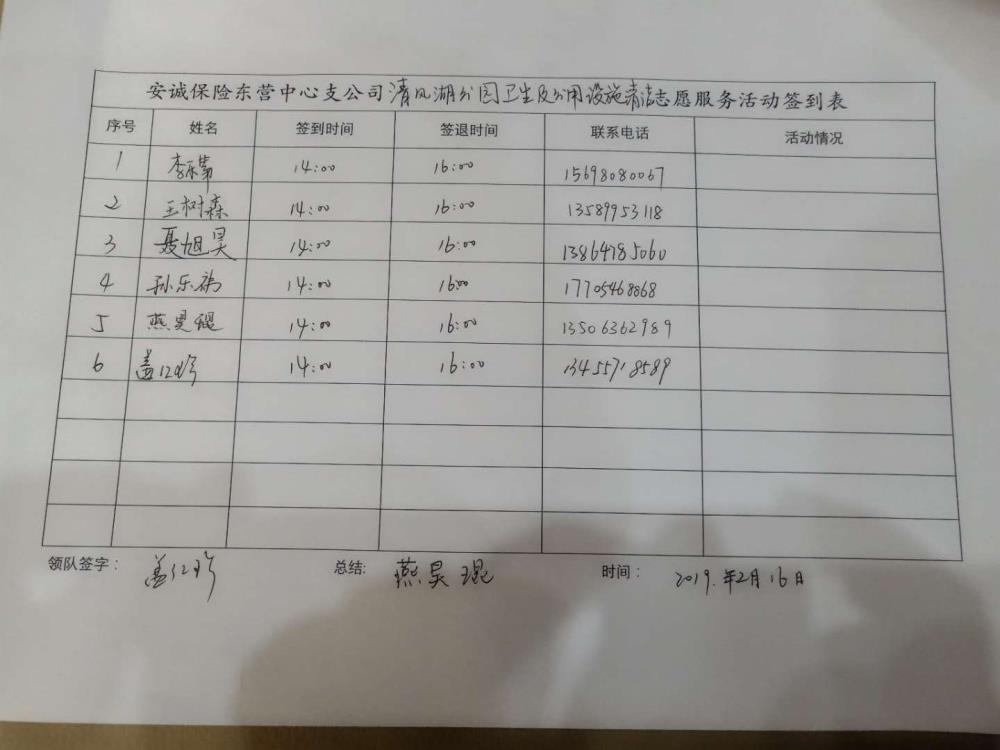 安诚保险东营中心支公司清风湖公园卫生及公用设施清洁志愿服务活动签到表
序号 姓名 签到时间 签退时间 联系电话 活动情况
1 14:00 16:00 15698080067
2 王树森 14:00 16:00 13589953118
3 聂旭昊 14:00 16:00 13864785060
4 孙乐 14:00 16:00 17705468868
5 燕昊琨 14:00 16:00 13506362989
6 盖红珍 14:00 16:00 13455718589
领队签字: 盖红珍 总结: 燕昊琨 时间: 2019.年2月16日